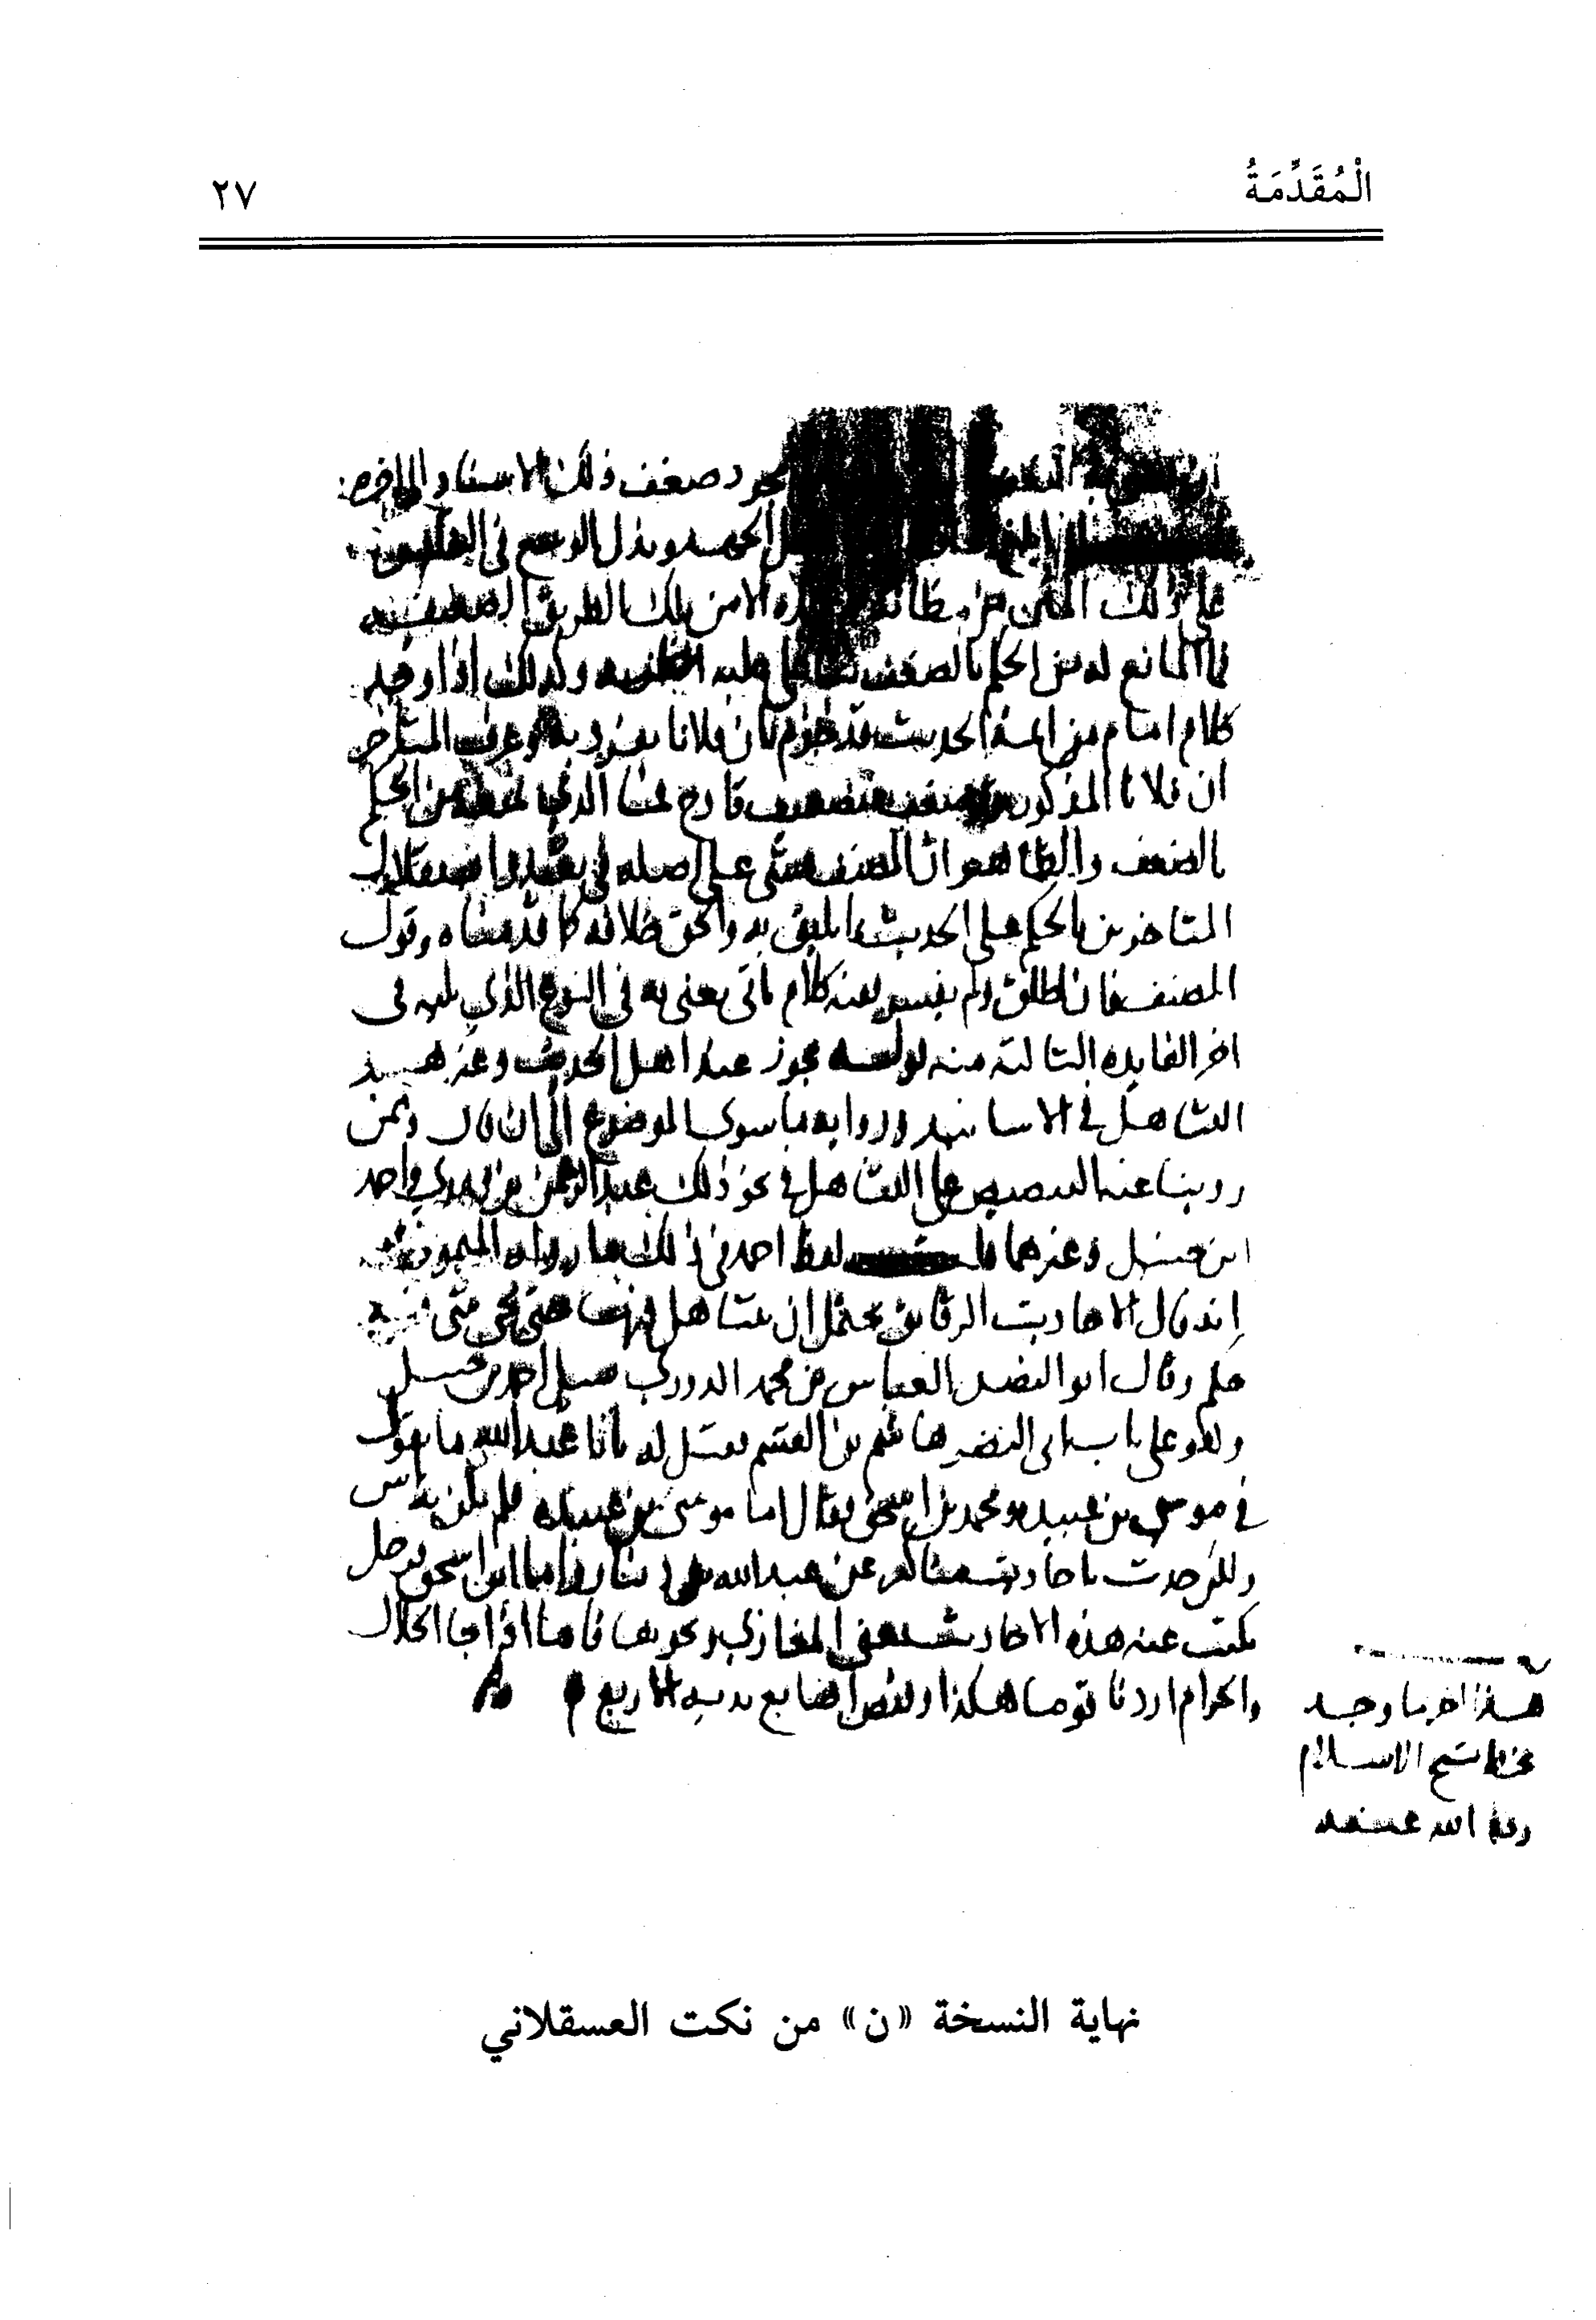 الْمُقَدِّمَةُ
٢٧
ضعف ذلك الاسناد
وبذل الوسع في
على ذلك المتن من مظانه الا من تلك الطريق الضعيفه
فما المانع له من الحكم بالضعف على ظنه وكذلك اذا وجد
كلام امام من ايمة الحديث قد جزم بان فلانا تفرد به وعرف المتاخر
ان فلانا المذكور قد ضعف بتضعيف قادح فما الذي يمنعه من الحكم
بالضعف والظاهر ان المصنف مشى على اصله في تعذر استقلال
المتاخرين بالحكم على الحديث بما يليق به والحق خلافه كما قدمناه وقول
المصنف فان اطلق ولم يفسر ففيه كلام ياتى يعنى به فى النوع الذي يليه فى
اخر الفايده الثالثة منه قوله يجوز عند اهل الحديث وغيرهم
التساهل في الاسانيد ورواية ما سوى الموضوع الى ان قال وممن
روينا عنه التنصيص على التساهل في نحو ذلك عبد الرحمن بن مهدي واحمد
ابن حنبل وغيرهما لفظ احمد في ذلك ما رواه الميموني
انه قال الاحاديث الرقايق يحتمل ان يتساهل فيها حتى يجي شى فيه
حكم وقال ابو الفضل العباس بن محمد الدوري سيل احمد بن حنبل
وهو على باب ابى النضر هاشم بن القسم فقيل له يا ابا عبد الله ما تقول
في موسى بن عبيده ومحمد بن اسحق فقال اما موسى بن عبيده فلم يكن به باس
ولكن حدث باحاديث مناكير عن عبد الله بن دينار واما ابن اسحق فرجل
يكتب عنه هذه الاحاديث يعني المغازي ونحوها فاما اذا جا الحلال
والحرام اردنا قوما هكذا وقبض اصابع يديه الاربع
هذا اخر ما وجد
بخط شيخ الاسلام
الله عنه
نهاية النسخة «ن» من نكت العسقلاني